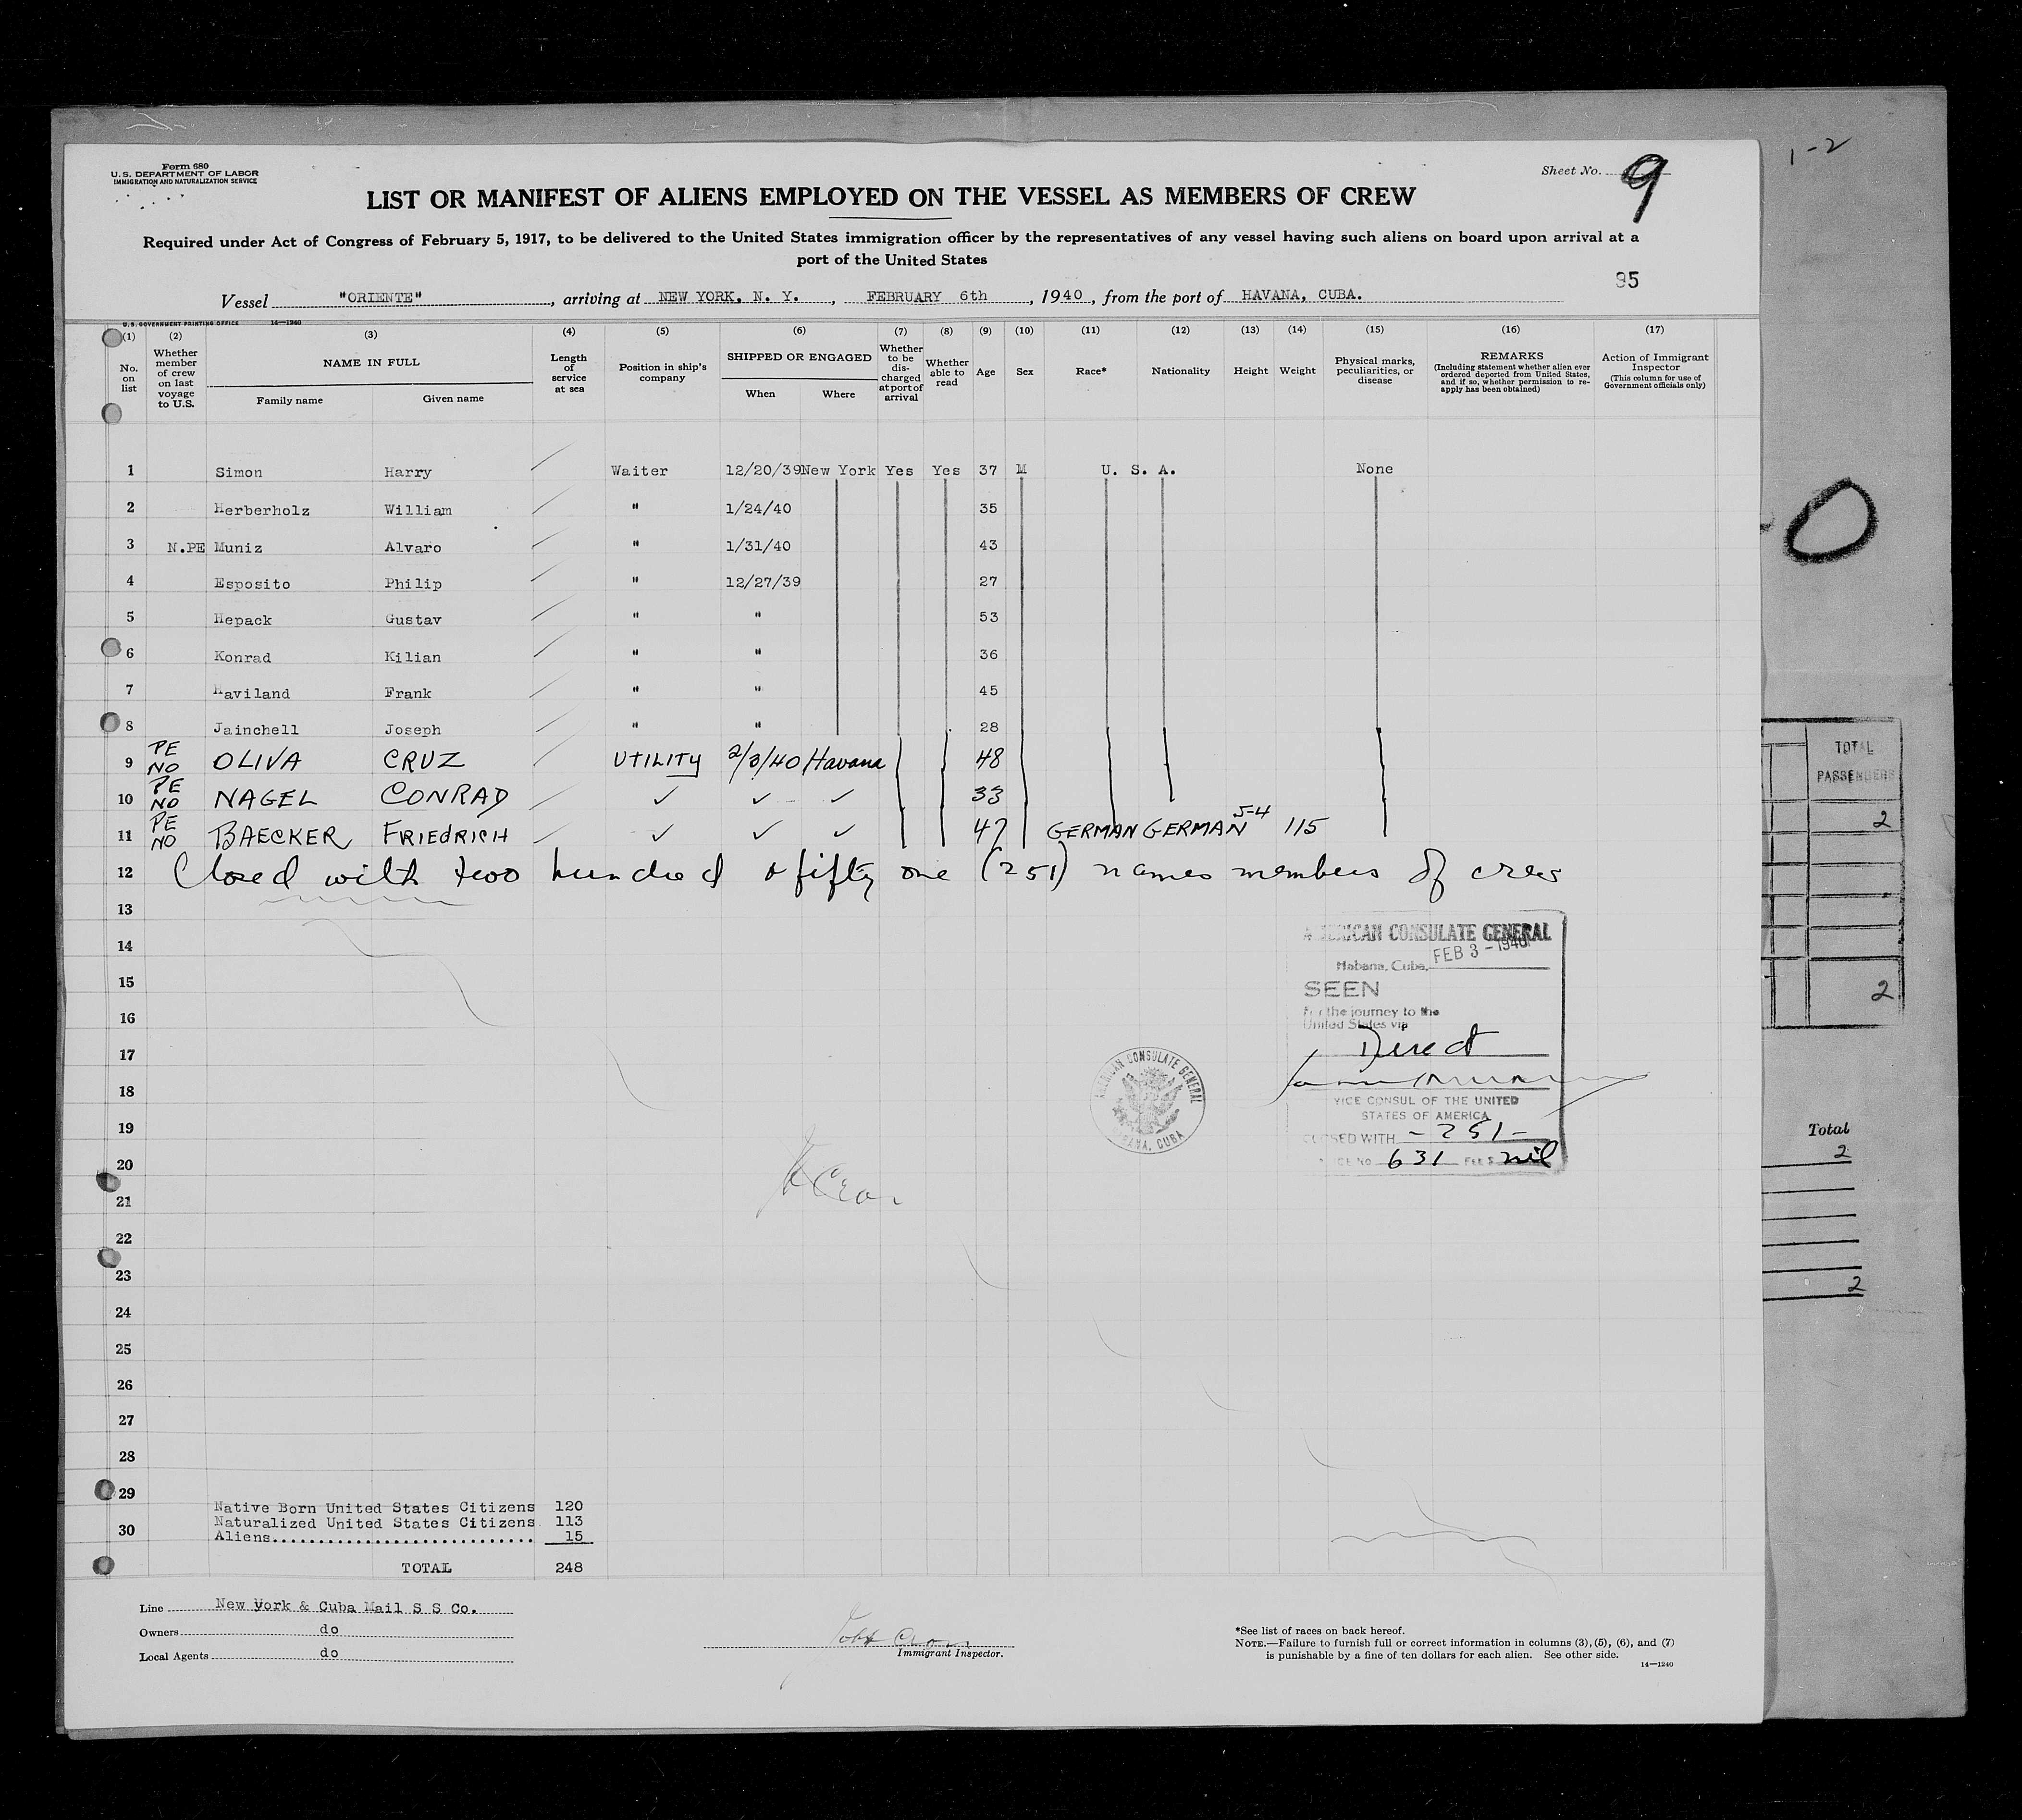 1-2
Form 680
U. S. DEPARTMENT OF LABOR
IMMIGRATION AND NATURALIZATION SERVICE
Sheet No. 9
LIST OR MANIFEST OF ALIENS EMPLOYED ON THE VESSEL AS MEMBERS OF CREW
Required under Act of Congress of February 5, 1917, to be delivered to the United States immigration officer by the representatives of any vessel having such aliens on board upon arrival at a
port of the United States
95
Vessel "ORIENTE", arriving at NEW YORK, N. Y., FEBRUARY 6th, 1940, from the port of HAVANA, CUBA.
U. S. GOVERNMENT PRINTING OFFICE 14—1240
(1) (2) (3) (4) (5) (6) (7) (8) (9) (10) (11) (12) (13) (14) (15) (16) (17)
No. on list
Whether member of crew on last voyage to U.S.
NAME IN FULL
Family name Given name
Length of service at sea
Position in ship's company
SHIPPED OR ENGAGED
When Where
Whether to be discharged at port of arrival
Whether able to read
Age
Sex
Race*
Nationality
Height
Weight
Physical marks, peculiarities, or disease
REMARKS
(Including statement whether alien ever ordered deported from United States, and if so, whether permission to reapply has been obtained)
Action of Immigrant Inspector
(This column for use of Government officials only)
1 Simon Harry Waiter 12/20/39 New York Yes Yes 37 M U. S. A. None
2 Herberholz William " 1/24/40 35
3 N.PE Muniz Alvaro " 1/31/40 43
4 Esposito Philip " 12/27/39 27
5 Hepack Gustav " " 53
6 Konrad Kilian " " 36
7 Haviland Frank " " 45
8 Jainchell Joseph " " 28
9 PE NO OLIVA CRUZ UTILITY 2/3/40 Havana 48
10 PE NO NAGEL CONRAD ✓ ✓ ✓ 33
11 PE NO BAECKER FRIEDRICH ✓ ✓ ✓ 47 GERMAN GERMAN 5-4 115
12 Closed with two hundred & fifty one (251) names members of crew
13
14
15
16
17
18
19
20
21
22
23
24
25
26
27
28
29
30
AMERICAN CONSULATE GENERAL
Habana, Cuba, FEB 3 - 1940
SEEN
For the journey to the
United States via
Direct
VICE CONSUL OF THE UNITED
STATES OF AMERICA
CLOSED WITH - 251 -
SERVICE No 631 FEE $ nil
AMERICAN CONSULATE GENERAL
HABANA, CUBA
Native Born United States Citizens 120
Naturalized United States Citizens 113
Aliens............................ 15
TOTAL 248
Line New York & Cuba Mail S S Co.
Owners do
Local Agents do
Immigrant Inspector.
*See list of races on back hereof.
NOTE.—Failure to furnish full or correct information in columns (3), (5), (6), and (7)
is punishable by a fine of ten dollars for each alien. See other side.
14—1240
0
TOTAL
PASSENGERS
2
2
Total
2
2